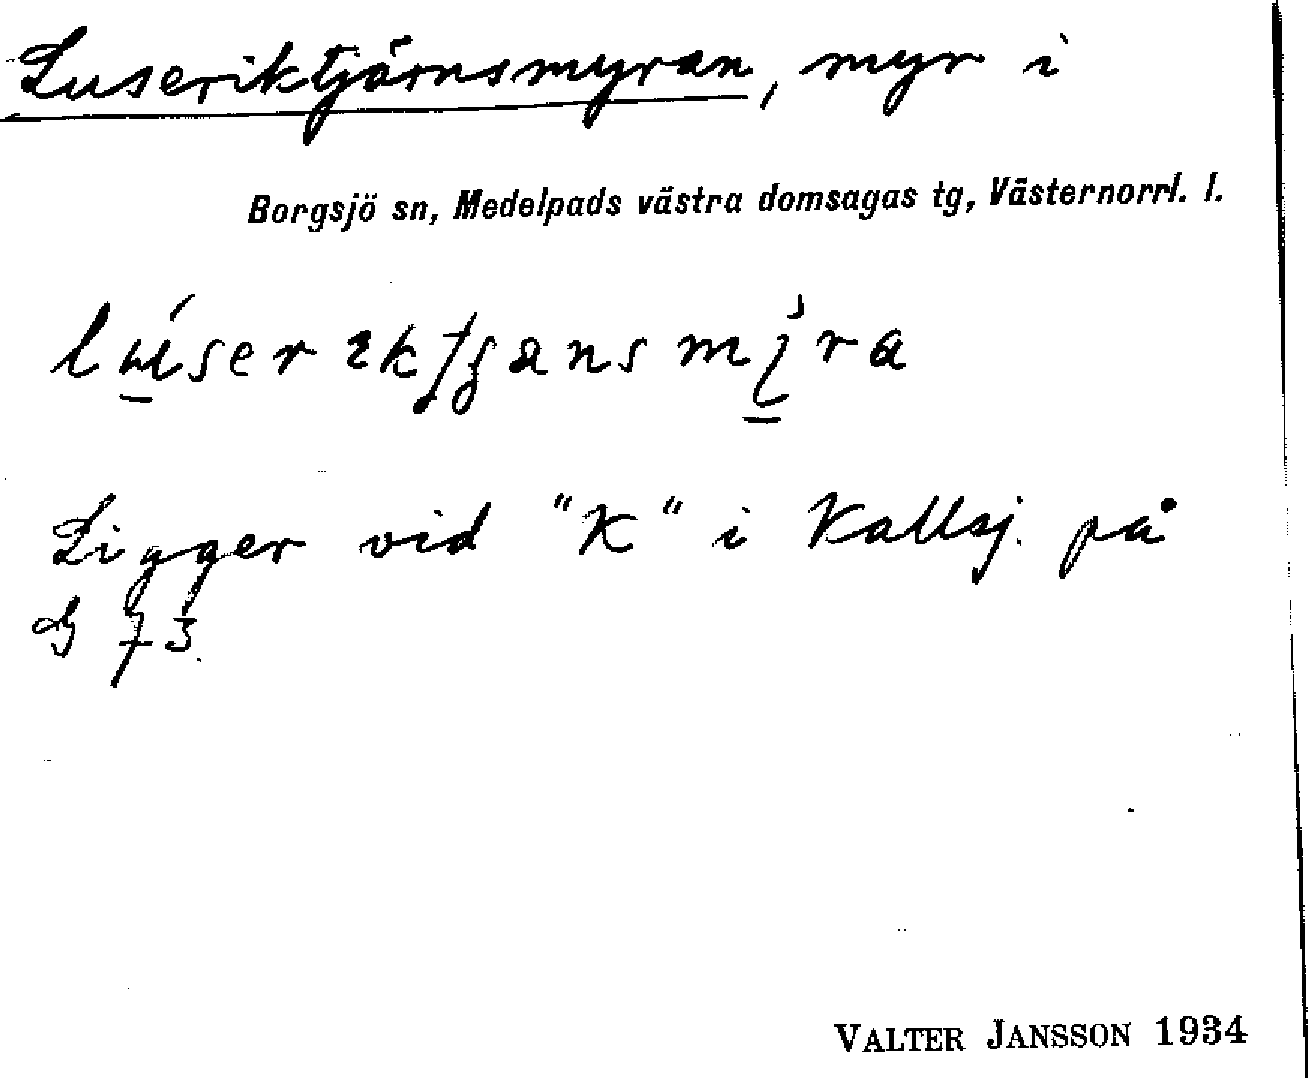 Luseriktjärnsmyran, myr i
Borgsjö sn, Medelpads västra domsagas tg, Västernorrl. l.
Ligger vid "K" i Kallsj. på
G 73.
VALTER JANSSON 1934